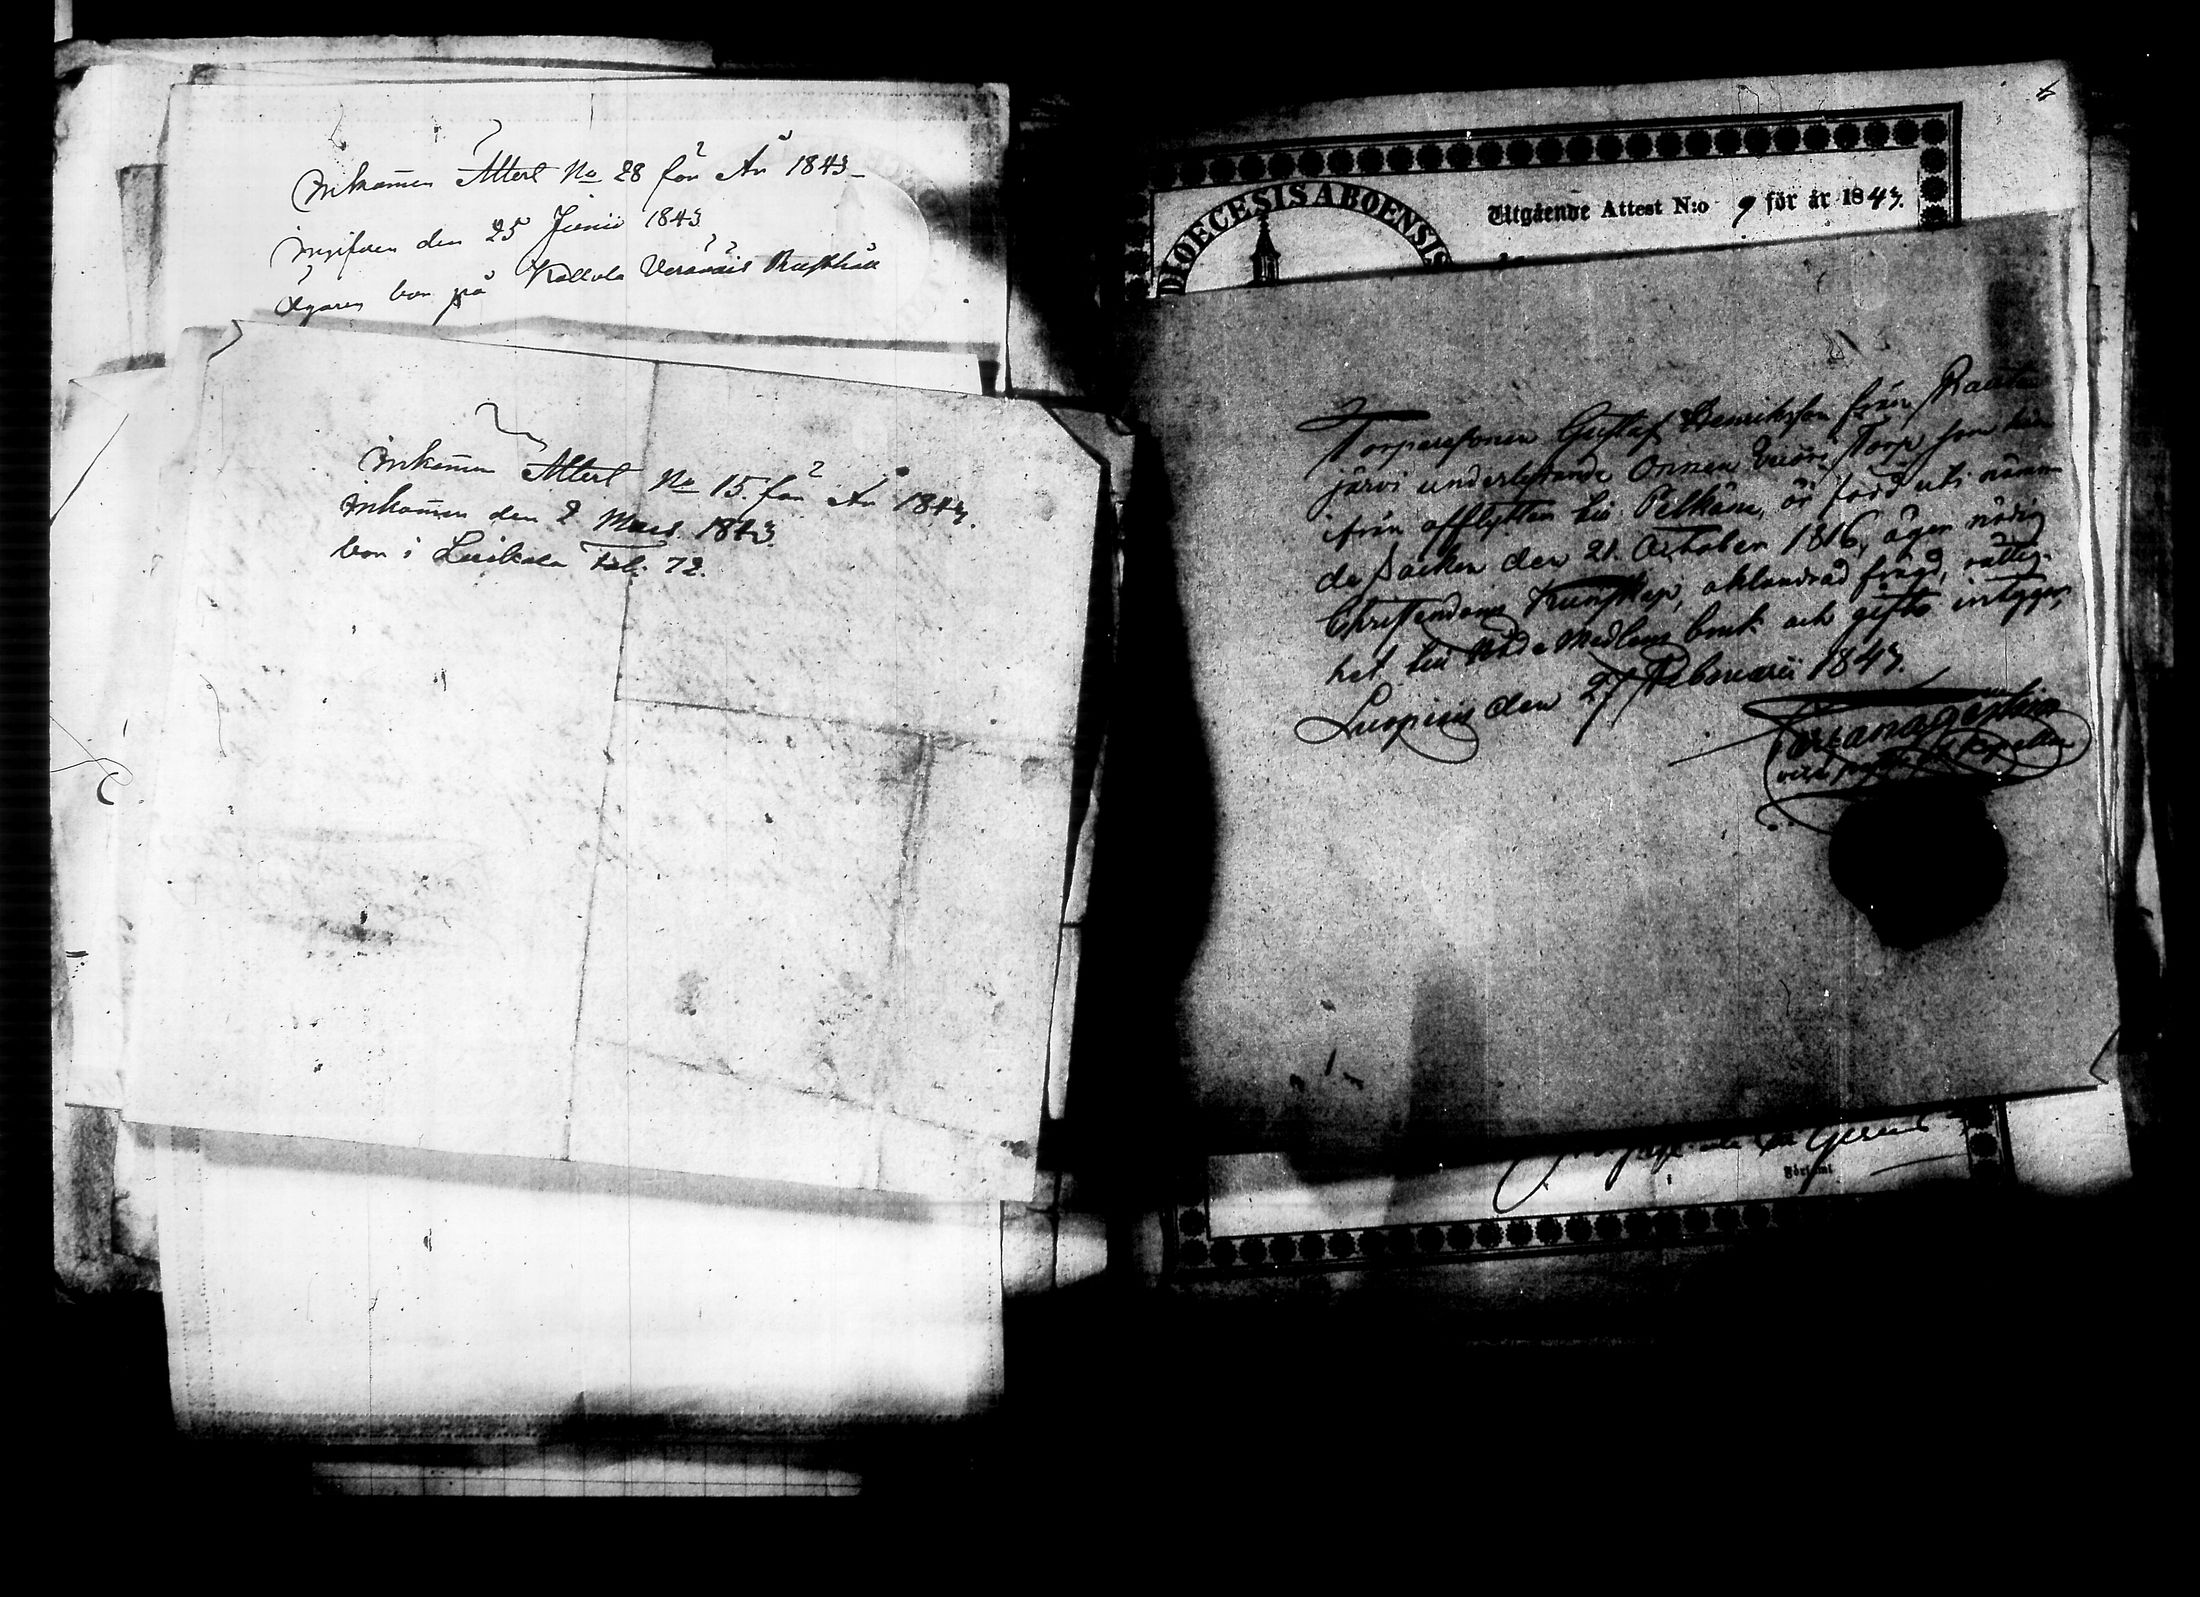 Inkom̄en Attest No 28 för År 1843
Ingifven den 25 Junii 1843
Ägaren bor på Kallola Rusthåll
Inkom̄en Attest No 15. för År 1843.
Inkom̄en den 2 Mars. 1843.
bor i Luikala Tab: 72.
DIOECESIS ABOENSIS
Utgående Attest N:o 9 för år 1843.
Torparesonen Gustaf Henriksson från Rauta
järvi underlydande Onnen Torp som här
ifrån afflyttar till Pelkäne, är född uti nämn
de Socken den 21. October 1816, äger nödig
Christendoms Kunskap, oklandrad frägd, rättig-
het till HHrs Nattvards bruk och gifto intygar,
Luopiois den 27 Februarii 1843.
Församl.